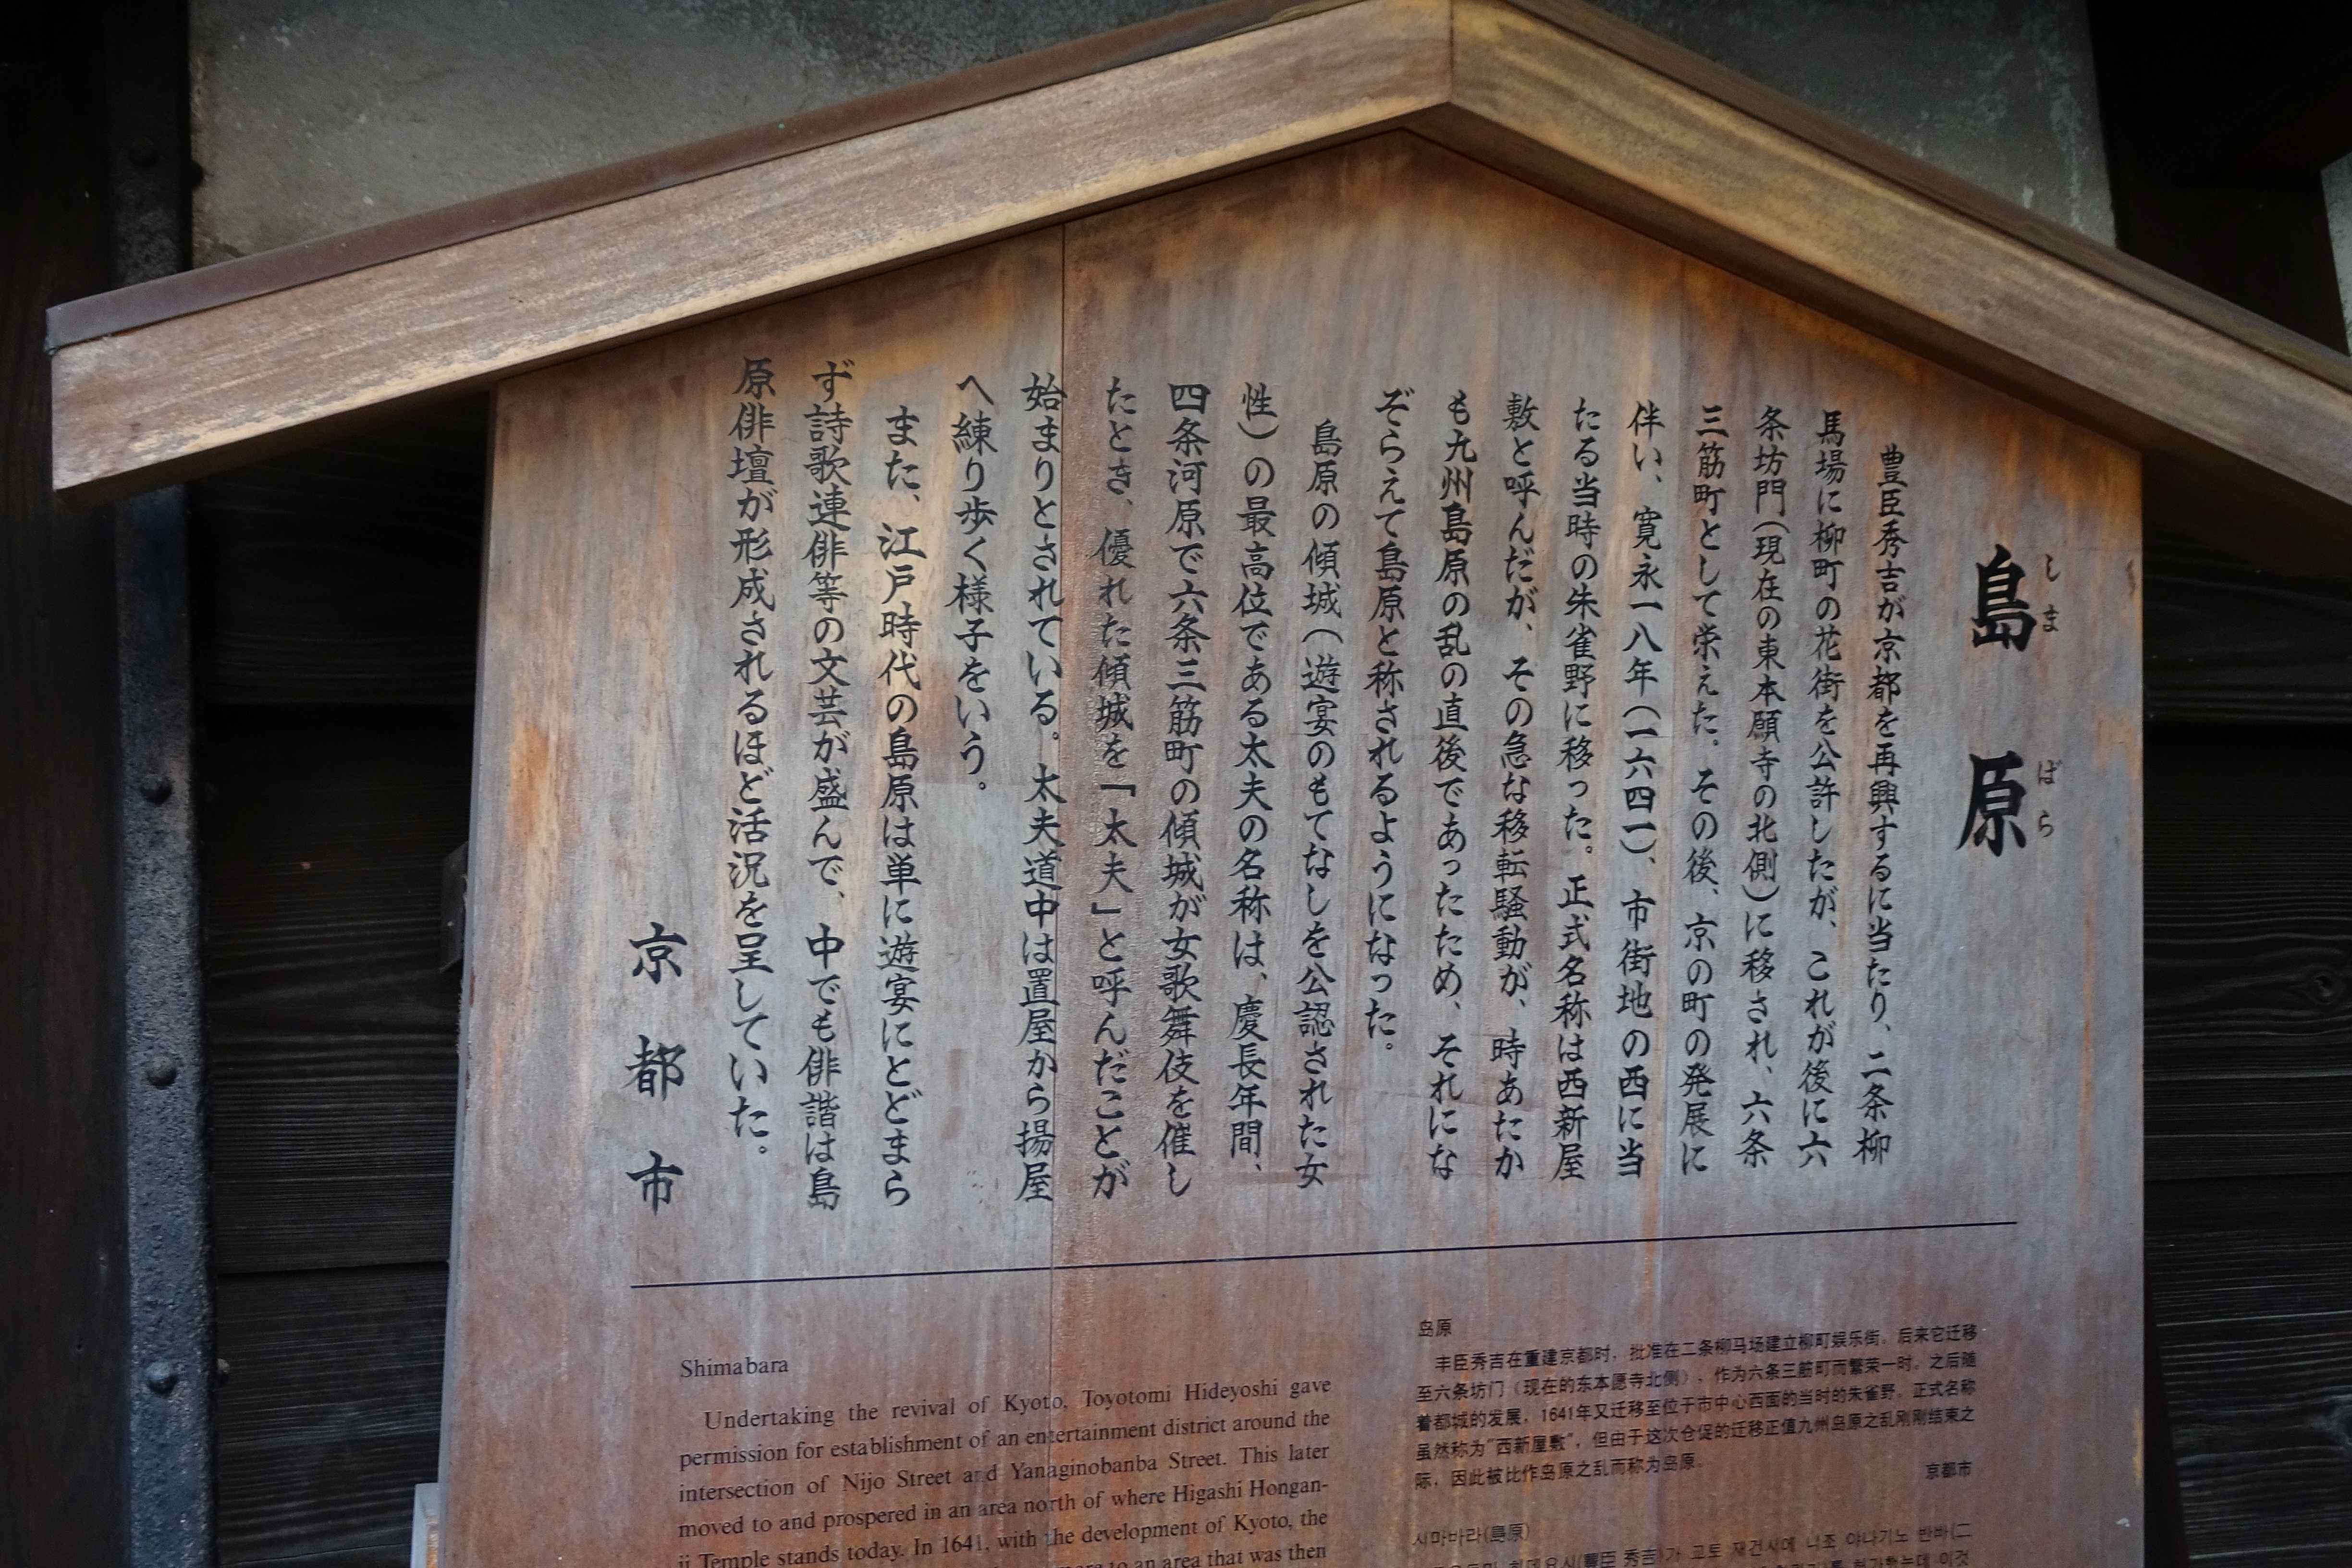 島原
しまばら
豊臣秀吉が京都を再興するに当たり、二条柳
馬場に柳町の花街を公許したが、これが後に六
条坊門(現在の東本願寺の北側)に移され、六条
三筋町として栄えた。その後、京の町の発展に
伴い、寛永一八年(一六四一)、市街地の西に当
たる当時の朱雀野に移った。正式名称は西新屋
敷と呼んだが、その急な移転騒動が、時あたか
も九州島原の乱の直後であったため、それにな
ぞらえて島原と称されるようになった。
島原の傾城(遊宴のもてなしを公認された女
性)の最高位である太夫の名称は、慶長年間、
四条河原で六条三筋町の傾城が女歌舞伎を催し
たとき、優れた傾城を「太夫」と呼んだことが
始まりとされている。太夫道中は置屋から揚屋
へ練り歩く様子をいう。
また、江戸時代の島原は単に遊宴にとどまら
ず詩歌連俳等の文芸が盛んで、中でも俳諧は島
原俳壇が形成されるほど活況を呈していた。
京都市
Shimabara
Undertaking the revival of Kyoto, Toyotomi Hideyoshi gave
permission for establishment of an entertainment district around the
intersection of Nijo Street and Yanaginobanba Street. This later
moved to and prospered in an area north of where Higashi Hongan-
ji Temple stands today. In 1641, with the development of Kyoto, the
to an area that was then
岛原
丰臣秀吉在重建京都时，批准在二条柳马场建立柳町娱乐街。后来它迁移
至六条坊门（现在的东本愿寺北侧），作为六条三筋町而繁荣一时。之后随
着都城的发展，1641年又迁移至位于市中心西面的当时的朱雀野。正式名称
虽然称为“西新屋敷”，但由于这次仓促的迁移正值九州岛原之乱刚刚结束之
际，因此被比作岛原之乱而称为岛原。
京都市
시마바라(島原)
히데요시(豊臣 秀吉)가 교토 재건시에 니조 야나기노 반바(二